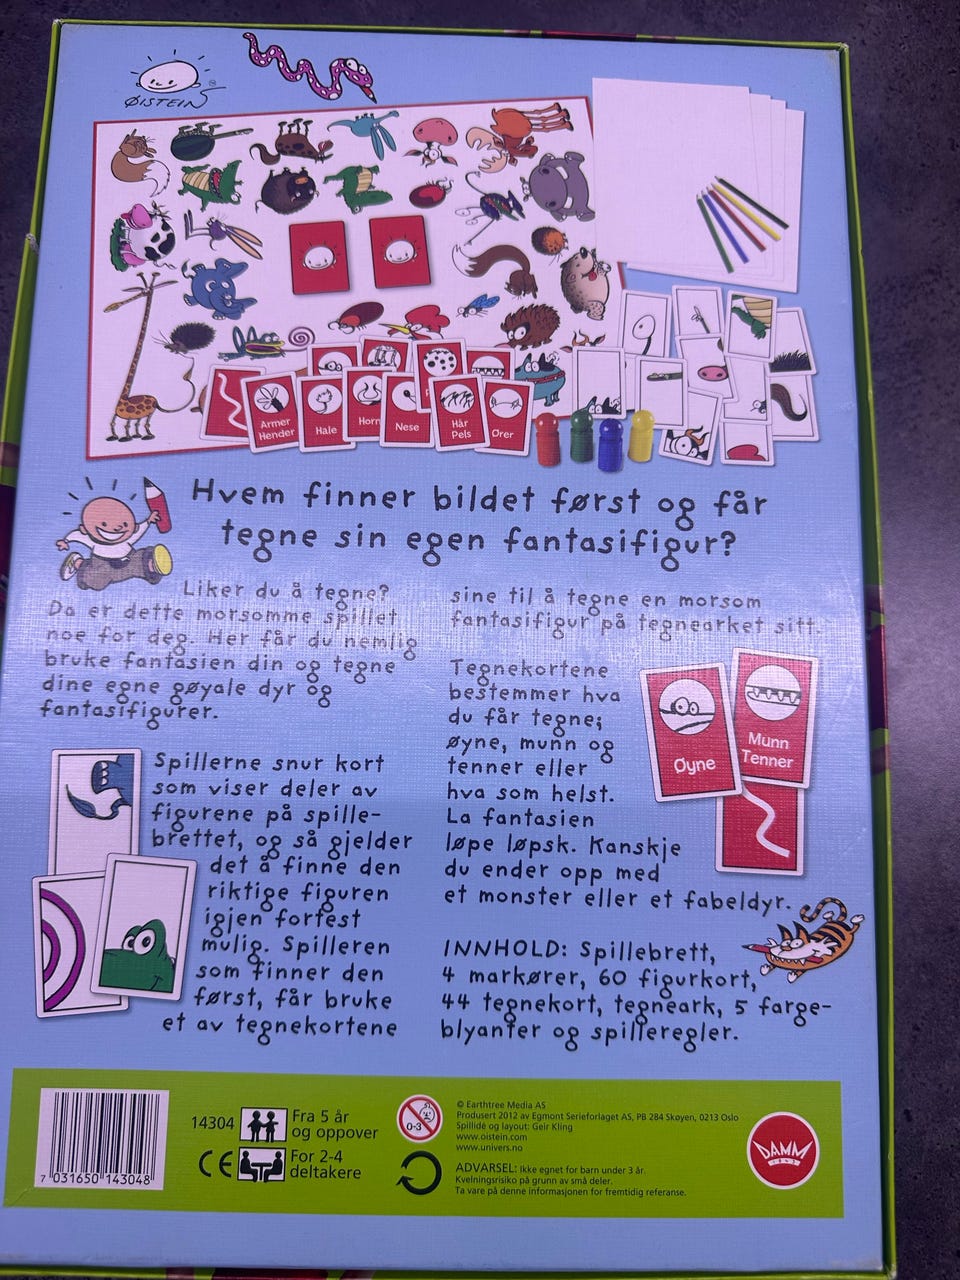 ØISTEIN
Armer
Hender
Hale
Horn
Nese
Hår
Pels
Ører
Hvem finner bildet først og får
tegne sin egen fantasifigur?
Liker du å tegne?
Da er dette morsomme spillet
noe for deg. Her får du nemlig
bruke fantasien din og tegne
dine egne gøyale dyr og
fantasifigurer.
Spillerne snur kort
som viser deler av
figurene på spille-
brettet, og så gjelder
det å finne den
riktige figuren
igjen fortest
mulig. Spilleren
som finner den
først, får bruke
et av tegnekortene
sine til å tegne en morsom
fantasifigur på tegnearket sitt.
Tegnekortene
bestemmer hva
du får tegne;
øyne, munn og
tenner eller
hva som helst.
La fantasien
løpe løpsk. Kanskje
du ender opp med
et monster eller et fabeldyr.
Øyne
Munn
Tenner
INNHOLD: Spillebrett,
4 markører, 60 figurkort,
44 tegnekort, tegneark, 5 farge-
blyanter og spilleregler.
7 031650 143048
14304
Fra 5 år
og oppover
CE
For 2-4
deltakere
0-3
© Earthtree Media AS
Produsert 2012 av Egmont Serieforlaget AS, PB 284 Skøyen, 0213 Oslo
Spillidé og layout: Geir Kling
www.oistein.com
www.univers.no
ADVARSEL: Ikke egnet for barn under 3 år.
Kvelningsrisiko på grunn av små deler.
Ta vare på denne informasjonen for fremtidig referanse.
DAMM
1843